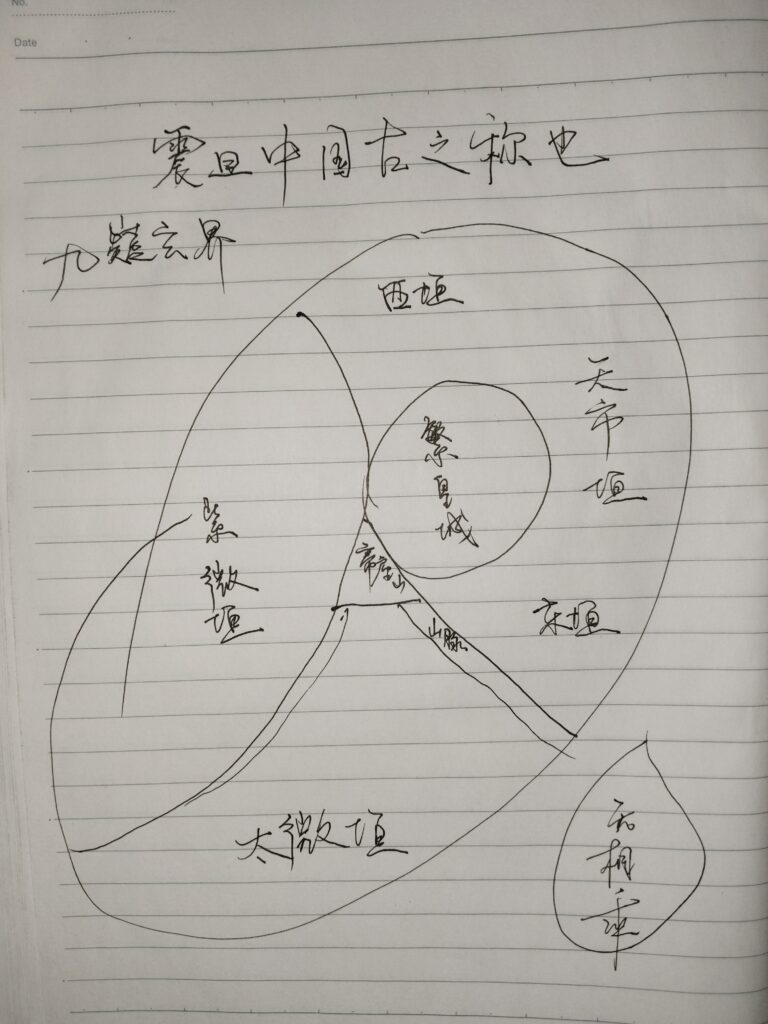 No.
Date
震旦中国古之称也
九嶷玄界
西垣
天市垣
繁皇城
紫微垣
帝座山
山脉
东垣
太微垣
无相乘